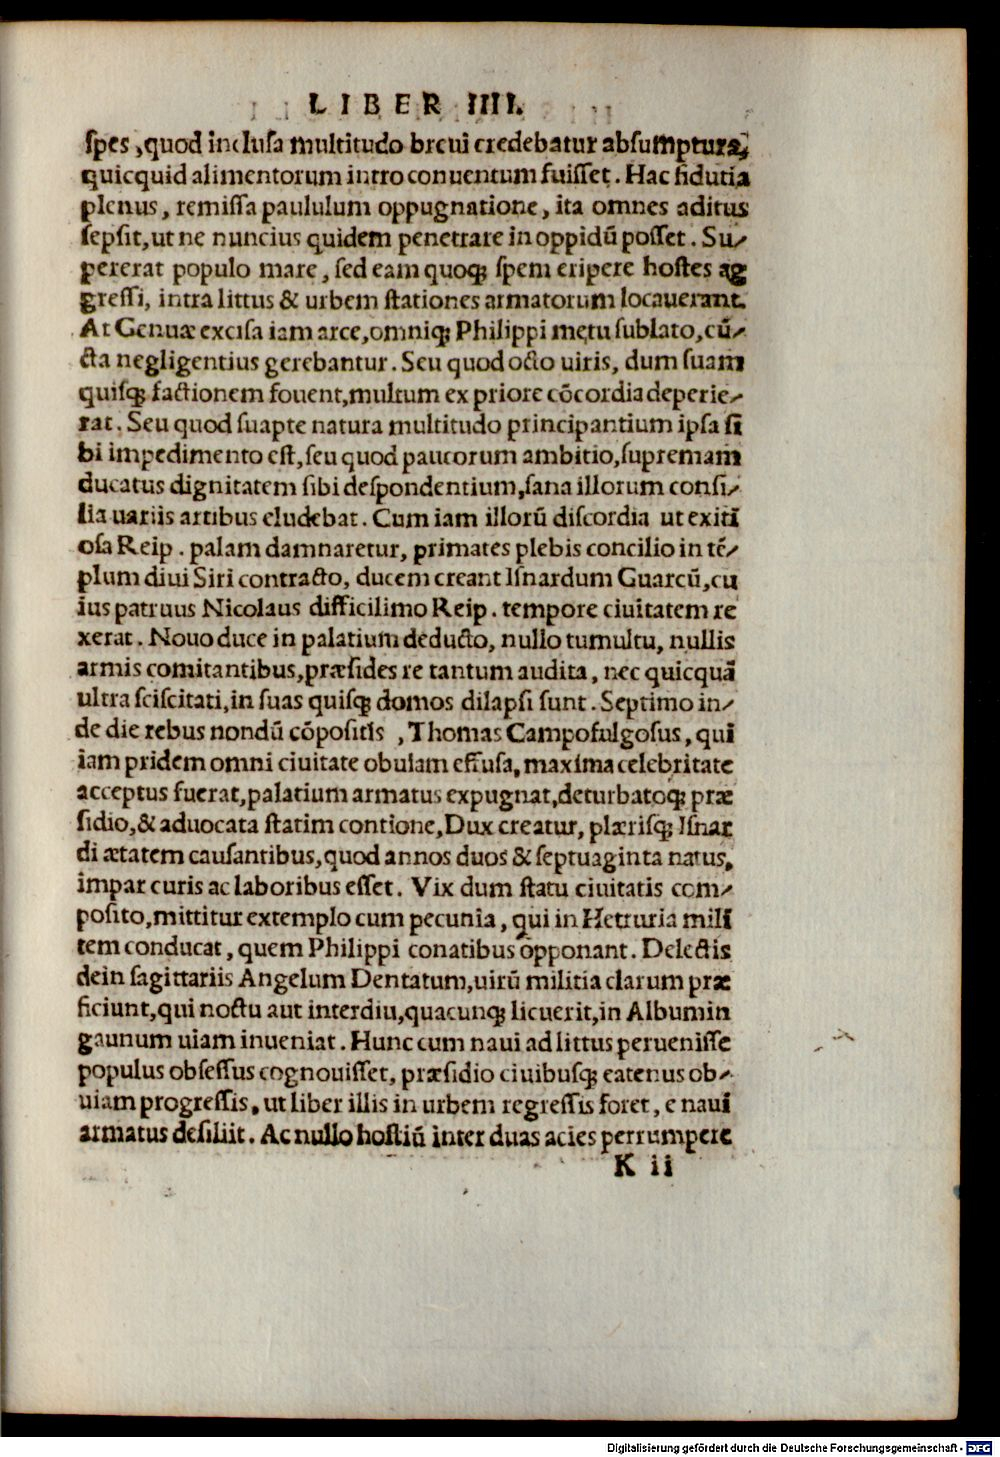 LIBER IIII.
spes, quod inclusa multitudo breui credebatur absumptura,
quicquid alimentorum intro conuentum fuisset. Hac fidutia
plenus, remissa paululum oppugnatione, ita omnes aditus
sepsit, ut ne nuncius quidem penetrare in oppidū posset. Su-
pererat populo mare, sed eam quoqꝫ spem eripere hostes ag
gressi, intra littus & urbem stationes armatorum locauerant.
At Genuæ excisa iam arce, omniqꝫ Philippi metu sublato, cū-
cta negligentius gerebantur. Seu quod octo uiris, dum suam
quisqꝫ factionem fouent, multum ex priore cōcordia deperie-
rat. Seu quod suapte natura multitudo principantium ipsa si
bi impedimento est, seu quod paucorum ambitio, supremam
ducatus dignitatem sibi despondentium, sana illorum consi-
lia uariis artibus eludebat. Cum iam illorū discordia ut exiti
osa Reip. palam damnaretur, primates plebis concilio in tē-
plum diui Siri contracto, ducem creant Isnardum Guarcū, cu
ius patruus Nicolaus difficilimo Reip. tempore ciuitatem re
xerat. Nouo duce in palatium deducto, nullo tumultu, nullis
armis comitantibus, præsides re tantum audita, nec quicquā
ultra sciscitati, in suas quisqꝫ domos dilapsi sunt. Septimo in-
de die rebus nondū cōpositis, Thomas Campofulgosus, qui
iam pridem omni ciuitate obuiam effusa, maxima celebritate
acceptus fuerat, palatium armatus expugnat, deturbatoqꝫ præ
sidio, & aduocata statim contione, Dux creatur, plærisqꝫ Isnar
di ætatem causantibus, quod annos duos & septuaginta natus,
impar curis ac laboribus esset. Vix dum statu ciuitatis com-
posito, mittitur extemplo cum pecunia, qui in Hetruria mili
tem conducat, quem Philippi conatibus opponant. Delectis
dein sagittariis Angelum Dentatum, uirū militia clarum præ
ficiunt, qui noctu aut interdiu, quacunqꝫ licuerit, in Albumin
gaunum uiam inueniat. Hunc cum naui ad littus peruenisse
populus obsessus cognouisset, præsidio ciuibusqꝫ eatenus ob-
uiam progressis, ut liber illis in urbem regressis foret, e naui
armatus desiliit. Ac nullo hostiū inter duas acies perrumpere
K ii
Digitalisierung gefördert durch die Deutsche Forschungsgemeinschaft - DFG